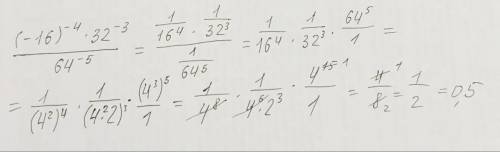 \frac{(-16)^{-4} \cdot 32^{-3}}{64^{-5}} = \frac{\frac{1}{16^4} \cdot \frac{1}{32^3}}{\frac{1}{64^5}} = \frac{1}{16^4} \cdot \frac{1}{32^3} \cdot \frac{64^5}{1} =
= \frac{1}{(4^2)^4} \cdot \frac{1}{(4^2 \cdot 2)^3} \cdot \frac{(4^3)^5}{1} = \frac{1}{4^8} \cdot \frac{1}{4^6 \cdot 2^3} \cdot \frac{4^{15 \cdot 1}}{1} = \frac{4^1}{8_2} = \frac{1}{2} = 0,5